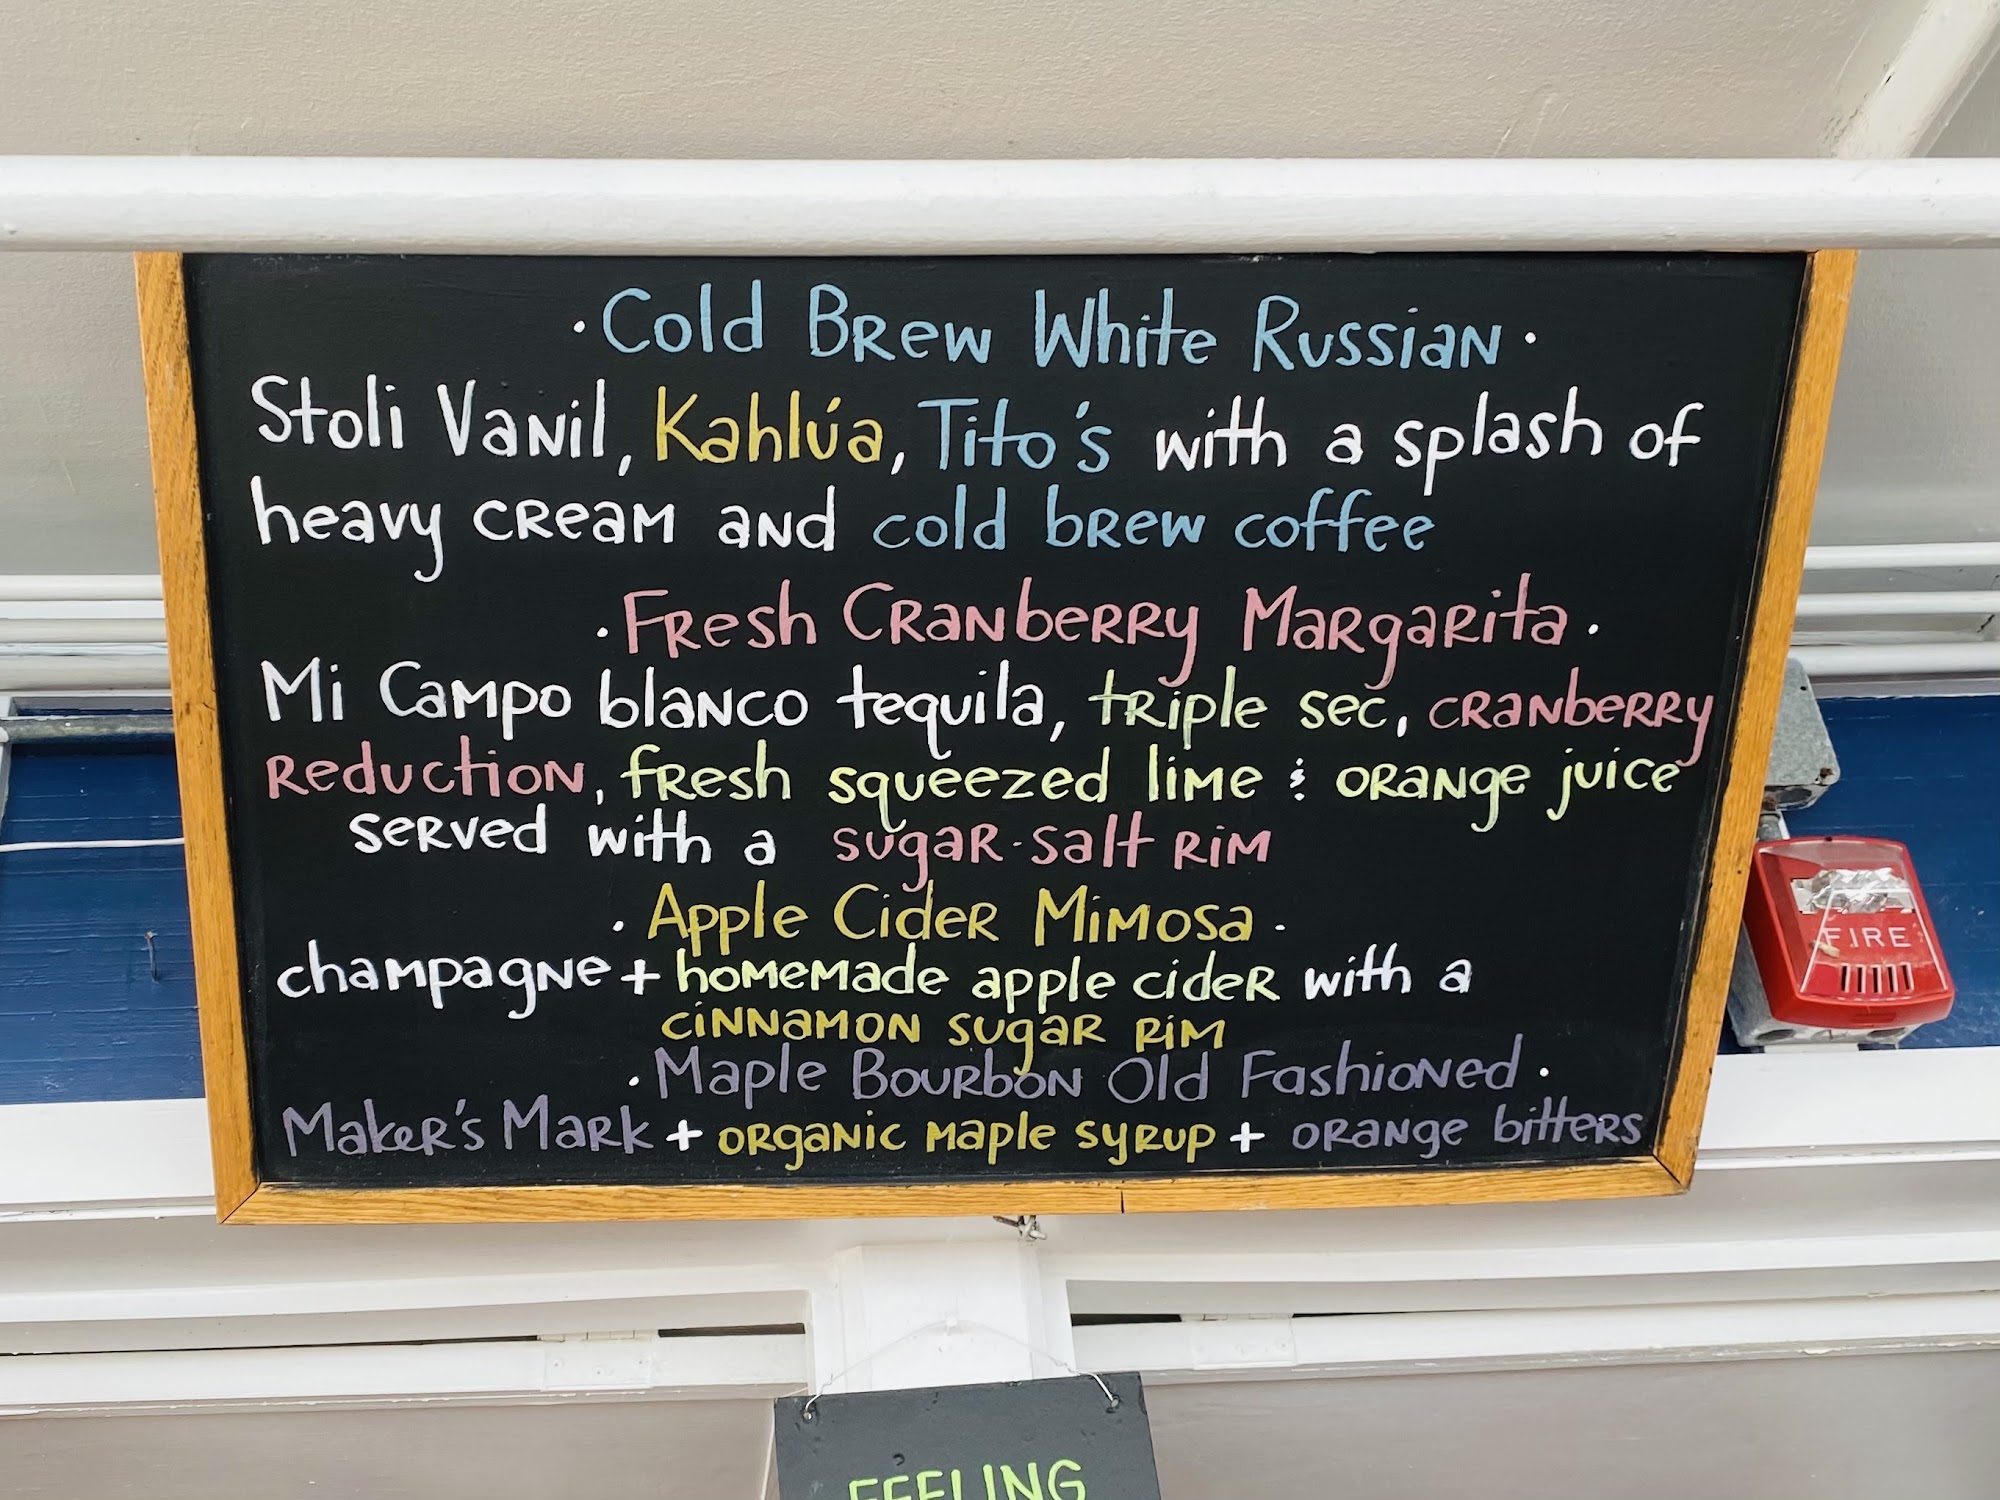 · Cold Brew White Russian ·
Stoli Vanil, Kahlúa, Tito's with a splash of
heavy cream and cold brew coffee
· Fresh Cranberry Margarita ·
Mi Campo blanco tequila, triple sec, cranberry
reduction, fresh squeezed lime & orange juice
served with a sugar-salt rim
· Apple Cider Mimosa ·
champagne + homemade apple cider with a
cinnamon sugar rim
· Maple Bourbon Old Fashioned ·
Maker's Mark + organic maple syrup + orange bitters
FIRE
FEELING